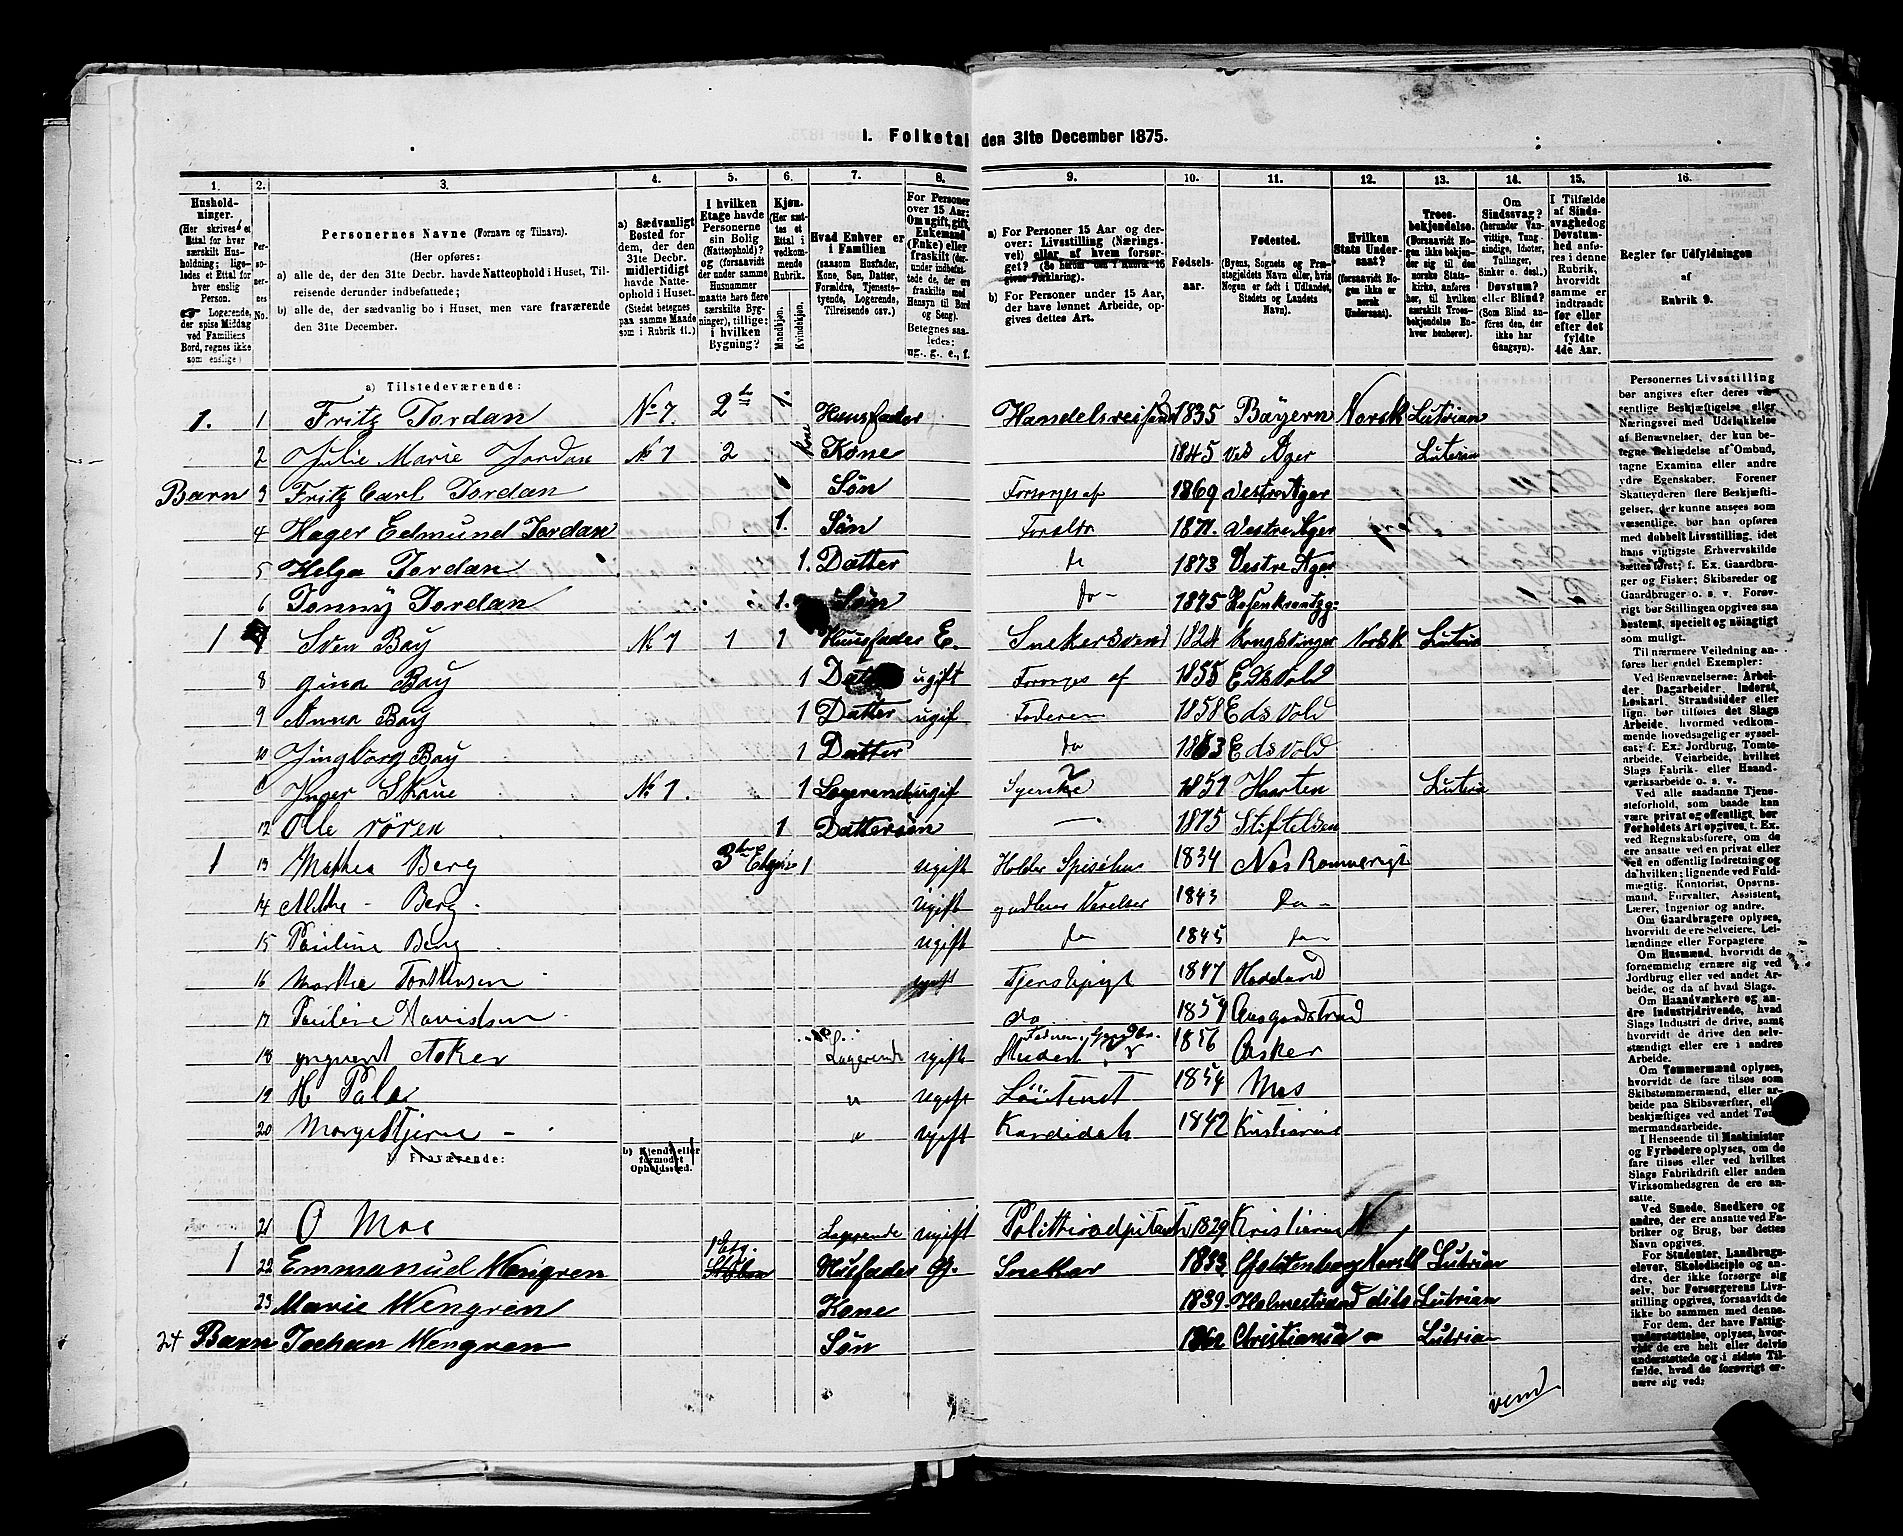 1. Folketal den 31te December 1875.
1. 2. 3. 4. 5. 6. 7. 8. 9. 10. 11. 12. 13. 14. 15. 16.
Husholdninger.
(Her skrives et Ettal for hver særskilt Husholdning; ligeledes et Ettal for hver enslig Person.
Logerende, der spise Middag ved Familiens Bord, regnes ikke som enslige.)
Personernes No.
Personernes Navne (Fornavn og Tilnavn).
(Her opføres:
a) alle de, der den 31te Decbr. havde Natteophold i Huset, Tilreisende derunder indbefattede;
b) alle de, der sædvanlig bo i Huset, men vare fraværende den 31te December.
a) Sædvanligt Bosted for dem, der den 31te Decbr. midlertidigt havde Natteophold i Huset. (Stedet betegnes paa samme Maade som i Rubrik 11.)
I hvilken Etage havde Personerne sin Bolig (Natteophold)? og (forsaavidt der under samme Husnummer maatte høre flere særskilte Bygninger), tillige: i hvilken Bygning?
Kjøn. (Her sættes et Ettal i vedkommende Rubrik.
Mandkjøn. Kvindekjøn.
Hvad Enhver er i Familien (saasom Husfader, Kone, Søn, Datter, Forældre, Tjenestetyende, Logerende, Tilreisende osv.)
For Personer over 15 Aar: Om ugift, gift, Enkemand (Enke) eller fraskilt
Betegnes saaledes: ug., g., e., f.
a) For Personer 15 Aar og derover: Livsstilling (Næringsvei) eller af hvem forsørget? (Se herom den i Rubrik 16 givne Forklaring).
b) For Personer under 15 Aar, der have lønnet Arbeide, opgives dettes Art.
Fødselsaar.
Fødested.
(Byens, Sognets og Præstegjeldets Navn eller, hvis Nogen er født i Udlandet, Stedets og Landets Navn).
Hvilken Stats Undersaat?
(forsaavidt Nogen ikke er norsk Undersaat).
Troesbekjendelse.
(Forsaavidt Nogen ikke bekjender sig til den norske Statskirke, anføres her, til hvilken særskilt Troesbekjendelse Enhver henhører).
Om Sindssvag? (herunder Vanvittige, Tungsindige, Idioter, Tullinger, Sinker o. desl.) Døvstum? eller Blind? (Som Blind anføres den, der ikke har Gangsyn).
I Tilfælde af Sindssvaghed og Døvstumhed anføres i denne Rubrik, hvorvidt samme er indtraadt før eller efter det fyldte 4de Aar.
Regler for Udfyldningen af Rubrik 9.
a) Tilstedeværende:
1. 1 Fritz Jordan No 7. 2 1. Huusfader 1835 Bayern Norsk Lutrian
2 Julie Marie Jordan No 7 2 Kone 1845 Ved Ager Luterian
Barn 3 Fritz Carl Jordan Søn Forsørges af 1869 Vestre Ager
4 Hager Edmund Jordan 1. Søn 1871. Vestre Ager
5 Helga Jordan 1. Datter 1873 Vestre Ager
6 Tonny Jordan 1. Søn do - 1875
1 7 Sven Bay No 7 1 1 Huusfader E. Snekersvend 1824 Kongsvinger Norsk Lutrian
8 gina Bay 1 Datter ugift 1855 Edsvold
9 Anna Bay 1 Datter ugif Faderen 1858 Edsvold
10 Jingborg Bay 1 Datter do 1863 Edsvold
Inger Skaue No 7. 1 Logerende ugif Syerske 1851
12 Olle 1 Dattersøn 1875 Stiftelsen
1 13 Mathea Berg 3die Etagen 1 ugift Holder Spisehus 1834 Nas Romerige
14 Berg. ugift Værelser 1843 do -
15 Pauline Berg ugift do 1845 do
16 Marthe ugift Tjenstpige 1847
17 Pauline Davidsen do 1854 Aasgaardstrand
18 Asker Logerende ugift Student 1856 Asker
19 H Pale " ugift Løitenet 1854 Mos
20 Morgestjerne - " ugift Kandidat 1842 Kristiania
b) Fraværende:
b) Kjendt eller formodet Opholdssted.
21 O Moe Logerende ugift 1829 Kristiania
1 22 Emmanuel Wengren 1 Etg. Husfader G. Snekar 1833 Norsk Lutrian
23 Marie Wengren Kone 1839. Holmestrand dito Lutrian
24 Barn Johan Wengren Søn 1862 Christiania Lutrian
vend
Personernes Livsstilling bør angives efter deres væsentlige Beskjæftigelse eller Næringsvei med Udelukkelse af Benævnelser, der kun betegne Beklædelse af Ombud, tagne Examina eller andre ydre Egenskaber. Forener Skatteyderen flere Beskjæftigelser, der kunne ansees som væsentlige, bør han opføres med dobbelt Livsstilling, idet hans vigtigste Erhvervskilde sættes først; f. Ex. Gaardbruger og Fisker; Skibsreder og Gaardbruger o. s. v. Forøvrigt bør Stillingen opgives saa bestemt, specielt og nøiagtigt som muligt.
Til nærmere Veiledning anføres her endel Exempler:
Ved Benævnelserne: Arbeider, Dagarbeider, Inderst, Løskarl, Strandsidder eller lign. bør tilføies det Slags Arbeide, hvormed vedkommende hovedsagelig er sysselsat; f. Ex. Jordbrug, Tomtearbeide, Veiarbeide, hvilket Slags Fabrik- eller Haandværksarbeide o. s. v.
Ved alle saadanne Tjenesteforhold, som baade kan være privat og offentligt, bør Forholdets Art opgives, t. Ex. ved Regnskabsførere, om de ere ansatte ved en privat eller ved en offentlig Indretning og da hvilken; lignende ved Fuldmægtig, Kontorist, Opsynsmand, Forvalter, Assistent, Lærer, Ingeniør og andre.
Om Gaardbrugere oplyses, hvorvidt de ere Selveiere, Leilændinge eller Forpagtere
Om Husmænd, hvorvidt de fornemmelig ernære sig ved Jordbrug eller ved andet Arbeide, og da af hvad Slags.
Om Haandværkere og andre Industridrivende, hvad Slags Industri de drive, samt hvorvidt de drive den selvstændigt eller ere i andres Arbeide.
Om Tømmermænd oplyses, hvorvidt de fare tilsøs som Skibstømmermænd, eller arbeide paa Skibsværfter, eller beskjæftiges ved andet Tømmermandsarbeide.
I Henseende til Maskinister og Fyrbødere oplyses, om de fare tilsøs eller ved hvilket Slags Fabrikdrift eller anden Virksomhedsgren de ere ansatte.
Ved Smede, Snedkere og andre, der ere ansatte ved Fabriker og Brug, bør dettes Navn opgives.
For Studenter, Landbrugselever, Skoledisciple og andre, der ikke forsørge sig selv, bør Forsørgerens Livsstilling opgives, forsaavidt de ikke bo sammen med denne.
For dem, der have Fattigunderstøttelse, oplyses, hvorvidt de ere helt eller delvis understøttede og i sidste Tilfælde, hvad de forøvrigt ernære sig ved.